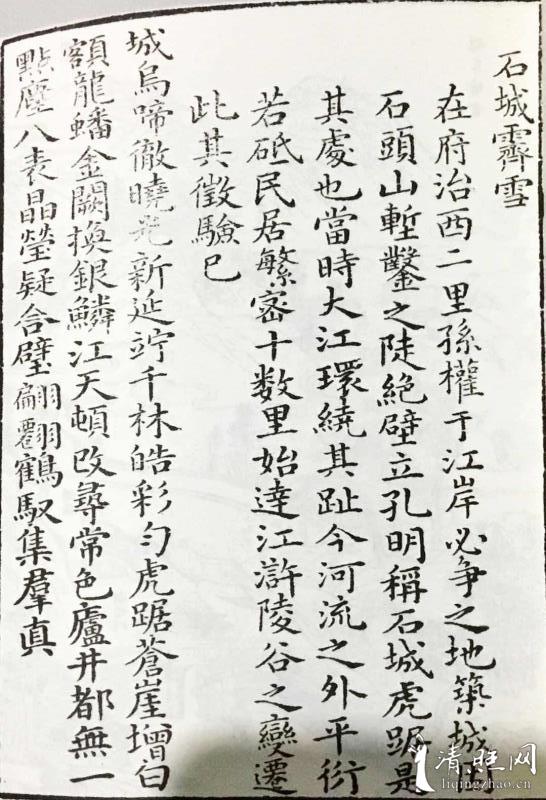 石城霽雪
在府治西二里孫權于江岸必爭之地築城因
石頭山塹鑿之陡絕壁立孔明稱石城虎踞是
其處也當時大江環繞其趾今河流之外平衍
若砥民居繁密十数里始達江滸陵谷之變遷
此其徵驗巳
城烏啼徹曉光新延竚千林皓彩勻虎踞蒼崖增白
額龍蟠金闕換銀鱗江天頓改尋常色廬井都無一
點塵八表晶瑩疑合璧翩翩鶴馭集羣真
清照网
liqingzhao.cn